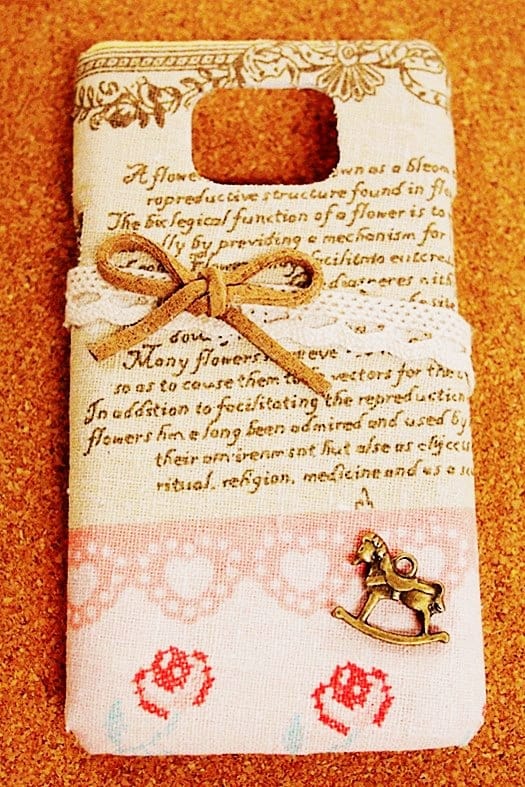 A flowe own as a bloom
roproductive structure found in flo
The bix legical function of a flower is to
lly by providing a mechanism for
Flo facilitate outcro
diaspores with
be site
dow
Many flowers eve
so as to cause them to vectors for the
In addstion to focilitating the reproduction
flowers hme long been admired and used by
their omirenm snt but alse as objec
ritual, religion, medicine and as a so